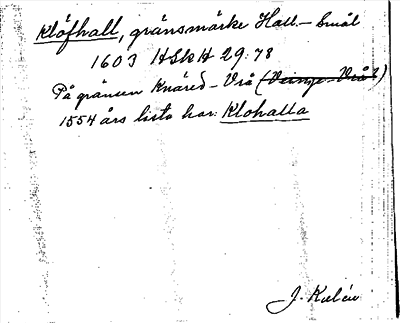 Klöfhall, gränsmärke Hall.– Smål
1603 HSkH 29:78
På gränsen Knäred – Vrå (Veinge-Vrå)
1554 års lista har: Klohalla
J. Kalén